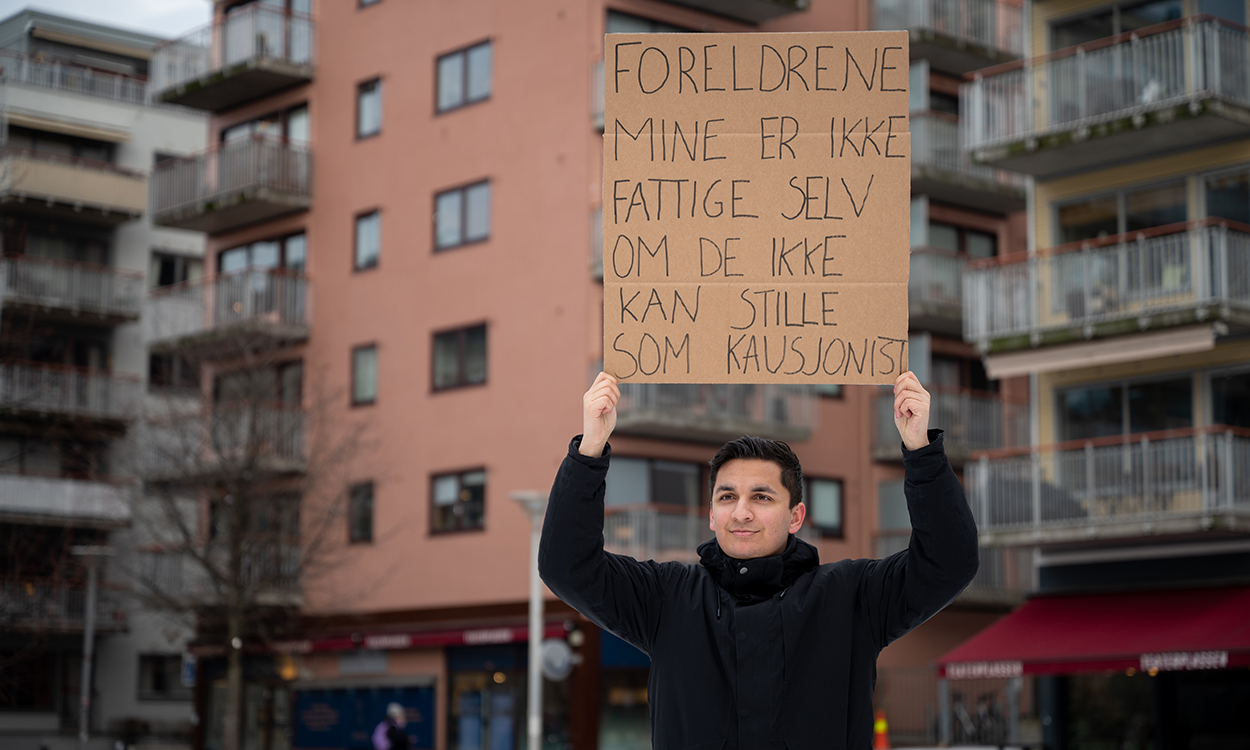 FORELDRENE
MINE ER IKKE
FATTIGE SELV
OM DE IKKE
KAN STILLE
SOM KAUSJONIST
TEATERPLASSEN
TEATERPLASSEN